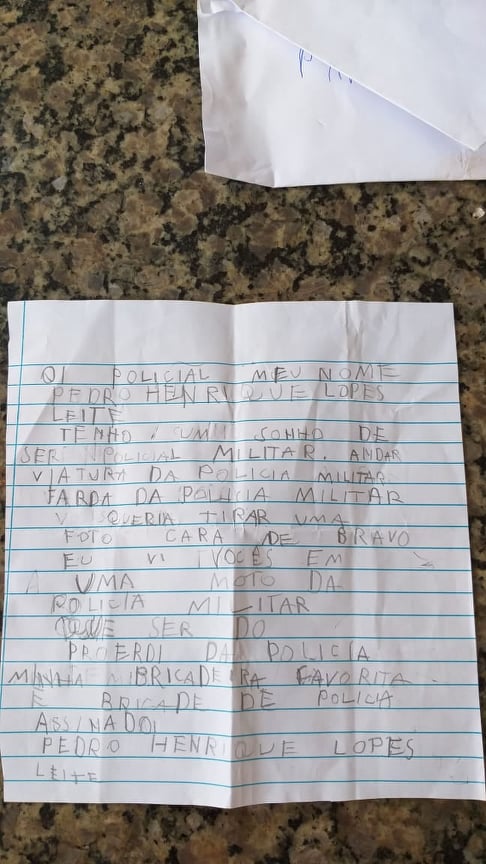 OI POLICIAL MEU NOME
PEDRO HENRIQUE LOPES
LEITE
TENHO UM SONHO DE
SER POLICIAL MILITAR. ANDAR
VIATURA DA POLICIA MILITAR
FARDA DA POLICIA MILITAR
QUERIA TIRAR UMA
FOTO CARA DE BRAVO
EU VI VOCES EM
UMA MOTO DA
POLICIA MILITAR
SER DO
PROERDI DA POLICIA
MINHA BRICADEIRA FAVORITA
E BRICADE DE POLICIA
ASSINADOI
PEDRO HENRIQUE LOPES
LEITE